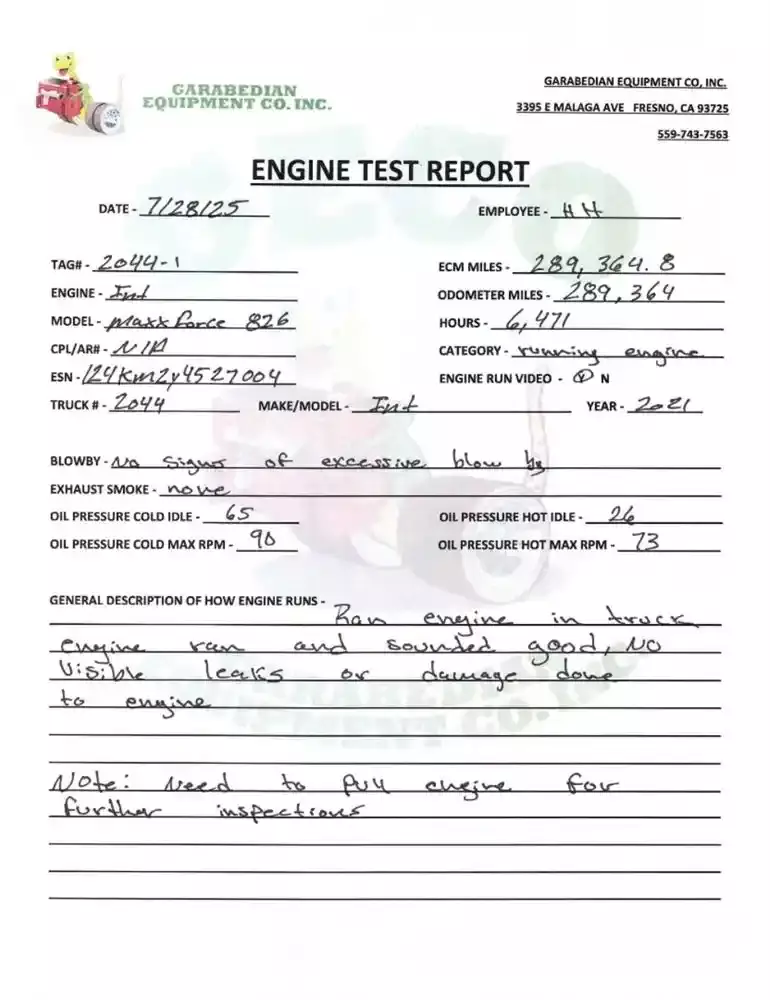 GARABEDIAN
EQUIPMENT CO. INC.
GARABEDIAN EQUIPMENT CO, INC.
3395 E MALAGA AVE FRESNO, CA 93725
559-743-7563
ENGINE TEST REPORT
DATE - 7/28/25 EMPLOYEE - HH
TAG# - 2044-1 ECM MILES - 289, 364. 8
ENGINE - Int ODOMETER MILES - 289, 364
MODEL - Maxx force 826 HOURS - 6,471
CPL/AR# - N/A CATEGORY - running engine
ESN - 124KM2Y4527004 ENGINE RUN VIDEO - Y N
TRUCK # - 2044 MAKE/MODEL - Int YEAR - 2021
BLOWBY - No signs of excessive blow by
EXHAUST SMOKE - none
OIL PRESSURE COLD IDLE - 65 OIL PRESSURE HOT IDLE - 26
OIL PRESSURE COLD MAX RPM - 90 OIL PRESSURE HOT MAX RPM - 73
GENERAL DESCRIPTION OF HOW ENGINE RUNS - Ran engine in truck
engine ran and sounded good, NO
Visible leaks or damage done
to engine
Note: Need to pull engine for
further inspections
GECO
GARABEDIAN
EQUIPMENT CO. INC.